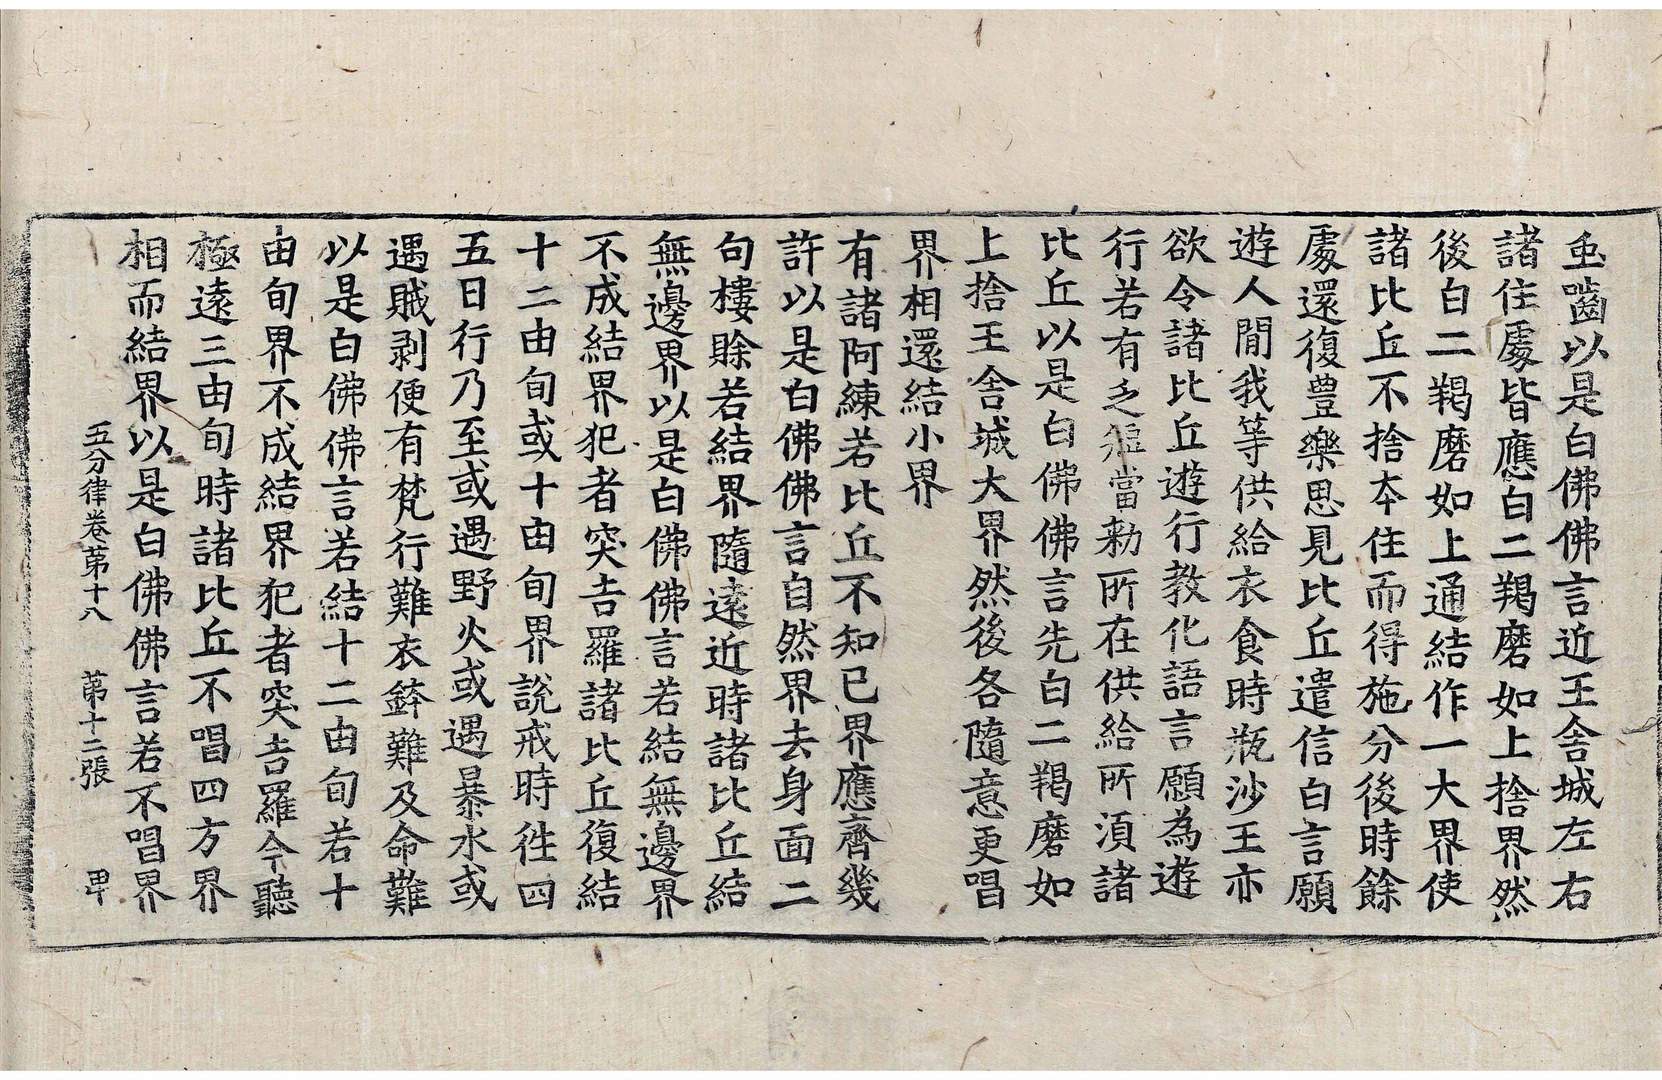 虫齧以是白佛佛言近王舍城左右
諸住處皆應白二羯磨如上捨界然
後白二羯磨如上通結作一大界使
諸比丘不捨夲住而得施分後時餘
處還復豊樂思見比丘遣信白言願
遊人閒我等供給衣食時瓶沙王亦
欲令諸比丘遊行教化語言願為遊
行若有乏短當勑所在供給所湏諸
比丘以是白佛佛言先白二羯磨如
上捨王舍城大界然後各隨意更唱
界相還結小界
有諸阿練若比丘不知已界應齊幾
許以是白佛佛言自然界去身面二
句樓賒若結界隨遠近時諸比丘結
無邊界以是白佛佛言若結無邊界
不成結界犯者突吉羅諸比丘復結
十二由旬或十由旬界說戒時徃四
五日行乃至或遇野火或遇暴水或
遇賊剥便有梵行難衣鉢難及命難
以是白佛佛言若結十二由旬若十
由旬界不成結界犯者突吉羅今聽
極遠三由旬時諸比丘不唱四方界
相而結界以是白佛佛言若不唱界
五分律卷苐十八 苐十二張 甲